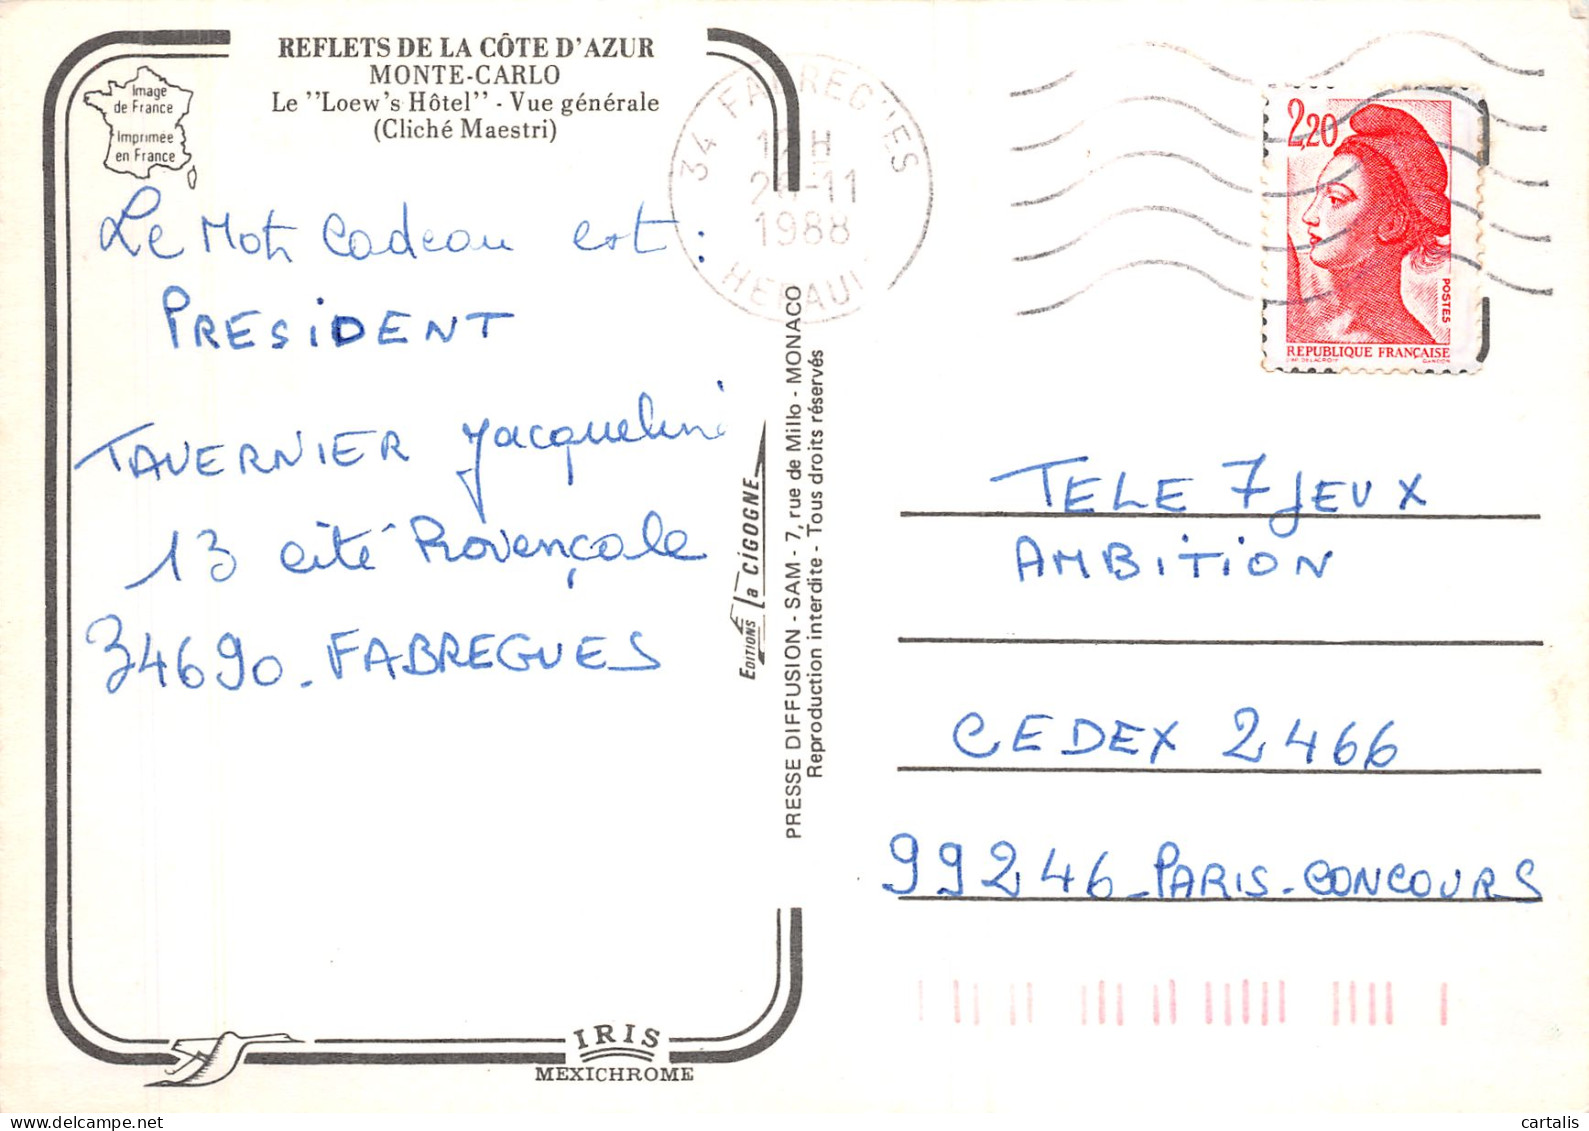 REFLETS DE LA CÔTE D'AZUR
MONTE-CARLO
Le "Loew's Hôtel" - Vue générale
(Cliché Maestri)
Image
de France
Imprimée
en France
Le Mot Cadeau est :
PRESIDENT
TAVERNIER Jacqueline
13 cité Provençale
34690 - FABREGUES
34 FABREGUES
26-11
1988
HERAULT
EDITIONS La CIGOGNE
PRESSE DIFFUSION - SAM - 7, rue de Millo - MONACO
Reproduction interdite - Tous droits réservés
2,20
POSTES
REPUBLIQUE FRANÇAISE
GANDON
TELE 7 JEUX
AMBITION
CEDEX 2466
99246 - PARIS - CONCOURS
IRIS
MEXICHROME
cartalis